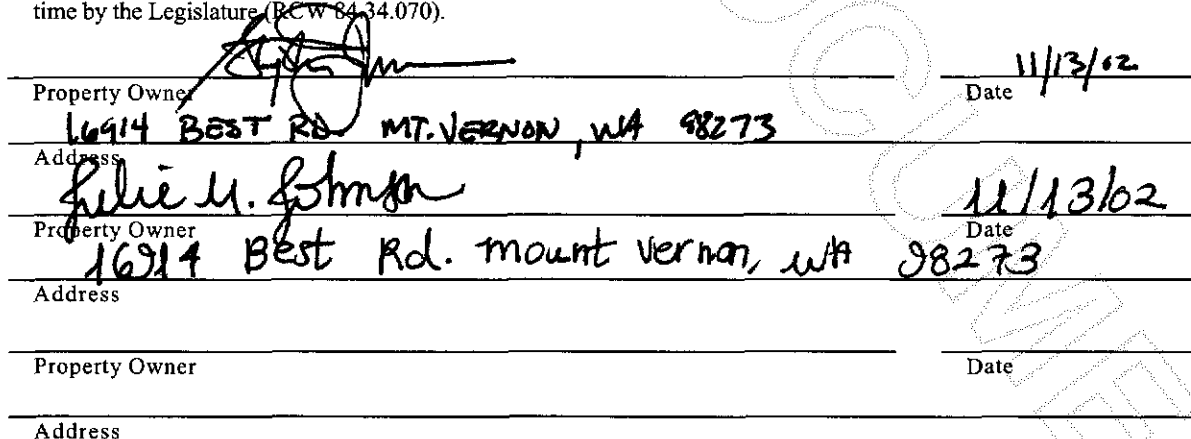 time by the Legislature (RCW 84.34.070).
11/13/02
Property Owner Date
16914 BEST RD MT. VERNON, WA 98273
Address
Julie M. Johnson 11/13/02
Property Owner Date
16914 Best Rd. mount vernon, WA 98273
Address
Property Owner Date
Address